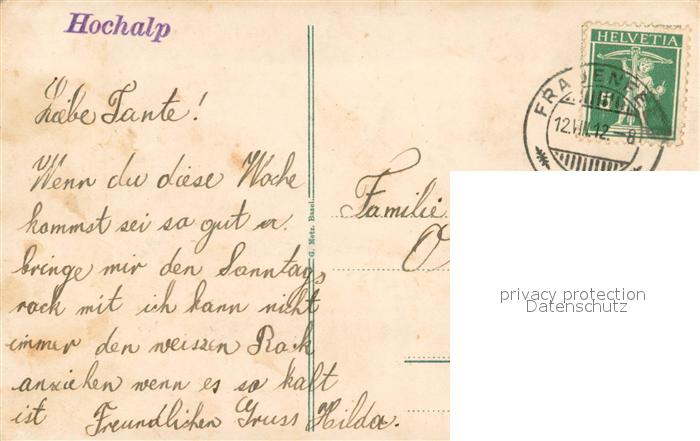 Hochalp
HELVETIA
5
FRAUENFE
12.VIII.12.-8
Liebe Tante!
Wenn du diese Woche
kommst sei so gut u.
bringe mir den Sonntags
rock mit ich kann nicht
immer den weiszen Rock
anziehen wenn es so kalt
ist Freundlichen Gruss Hilda.
G. Metz, Basel.
Familie
O
privacy protection
Datenschutz